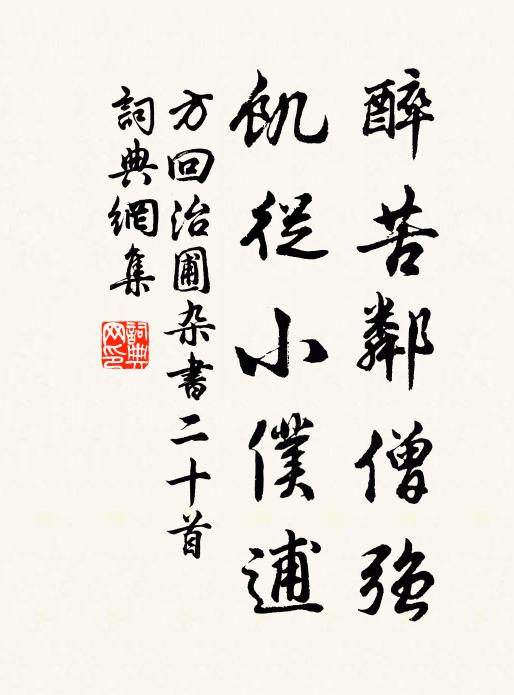 醉苦鄰僧強
飢從小僕逋
方回治圃杂書二十首
詞典網集
詞典网印